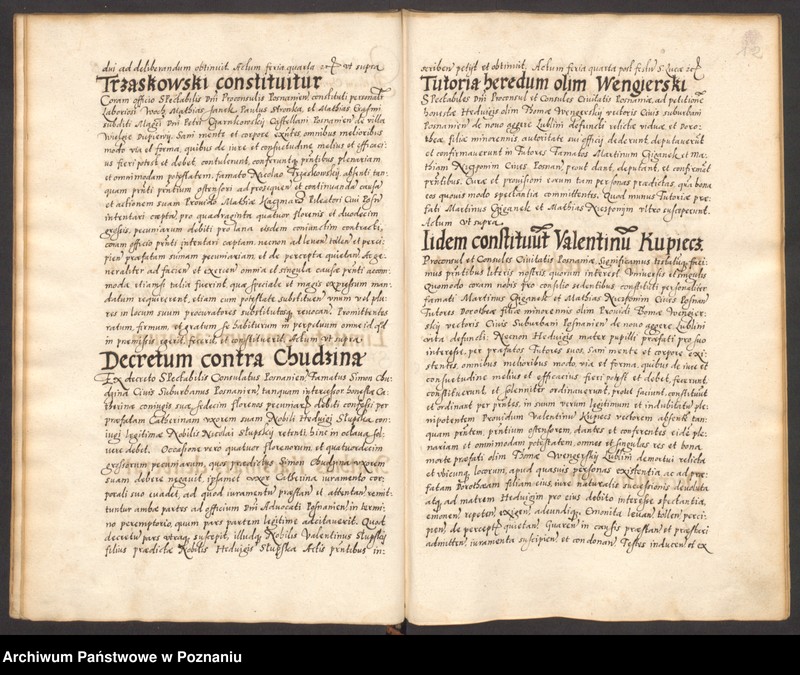 dui ad deliberandum obtinuit Actum feria quarta ut supra
Trzaskowski constituitur
Coram officio Spectabilis Dni Proconsulis Posnanien constituti personalr
Laboriosi Woch Mathias Janek Paulus Stronka et Mathias
subditi Czarnkowskij Castellani Posnanien de villa
Wielgie Sani mente et corpore omnibus melioribus
modo via et forma, quibus de iure et consuetudine melius et efficaci-
us fieri potest et debet, contulerunt, plenariam
et omnimodam potestatem, famato Nicolao absenti tan-
quam ad prosequen et continuandam causam
et actionem suam Mathia
intentari pro quadraginta quatuor florenis et duodecim
grossis, pecuniarum debiti pro lana eisdem coniunctim contracti,
coram officio intentari captam, necnon ad et perci-
pien praefatam summam pecuniariam, et de percepta quietan Ac ge-
neraliter ad facien et exercen omnia et singula causa accom-
moda etiamsi talia fuerint, quae speciale et magis expressum man-
datum requirerent, etiam cum potestate substituen unum vel plu-
res in locum suum procuratores substitutosq revocan. Promittentes
ratum, firmum, et gratum se habiturum in perpetuum omne id, qd
in praemissis egerit, fecerit et constituerit. Actum ut supra
Decretum contra Chudzina
Ex decreto Spectabilis Consulatus Posnanien, Famatus Simon Chu-
dzina Civis Suburbanus Posnanien, tanquam intercessor honestae Ca-
thrinae coniugis suae, sedecim florenos pecuniarum debiti confessi per
praefatam Catherinam uxorem suam Nobili Heduigi Slupska con-
iugi legitimae Nobilis Nicolai Slupskij retenti, hinc in octava sol-
vere debet. Occasione vero quatuor florenorum, et quatuordecim
grossorum pecuniarum, quos praedictus Simon Chudzina uxorem
suam debere negavit, ipsamet uxor Cathrina iuramento cor-
porali suo evadet, ad quod iuramentum praestan et attentan remit-
tuntur ambae partes ad officium Dni Advocati Posnanien, in termi-
no peremptorio, quem pars partem legitime adcitaverit. Quod
decretum pars utraq suscepit, illudq Nobilis Valentinus Slupskij
filius praedictae Nobilis Heduigis Slupska Actis in-
scriben petyt et obtinuit. Actum feria quarta post festum S Lucae
Tutoria heredum olim Wengierski
Spectabiles Dni Proconsul et Consules Civitatis Posnaniae, ad petitione
honestae Heduigis olim Thomae Wengerskij vectoris Civis suburbani
Posnanien de novo aggere Lublini defuncti relictae viduae, et Doro-
theae filiae minorennis autoritate sui officij dederunt, deputaverunt
et confirmaverunt in Tutores Famatos Martinum Gizganek et Ma-
thiam Niespornim Cives Posnan, prout dant, deputant, et confirmant
Curae et provisioni earum tam personas praedictas, qua bona
eos quovis modo spectantia committentes. Quod munus Tutoriae prae-
fati Martinus Gizganek et Mathias Niespornim ultro susceperunt.
Actum ut supra
Iidem constituut Valentinu Kupiecz
Proconsul et Consules Civitatis Posnaniae, Significamus
mus literis nostris quorum interest, Universis et singulis
Quomodo coram nobis pro consilio sedentibus constituti personaliter
famati Martinus Gizganek et Mathias Niespornim Cives Posnan
Tutores Dorotheae filiae minorennis olim Providi Thomae Wenger-
skij vectoris Civis Suburbani Posnanien de novo aggere Lublini
vita defuncti. Necnon Heduigis mater pupilli praefati pro suo
interesse, per praefatos Tutores suos, Sani mente et corpore exi-
stentes, omnibus melioribus modo via et forma, quibus de iure et
consuetudine melius et efficacius fieri potest et debet, fecerunt,
constituerunt, et solenniter ordinaverunt, prout faciunt, constituunt
et ordinant per praesentes, in suum verum legitimum et indubitatum ple-
nipotentem Providum Valentinum Kupiecz vectorem absentem tan-
quam praesentem, praesentium ostensorem, dantes et conferentes eidem ple-
nariam et omnimodam potestatem, omnes et singulas res et bona
morte praefati olim Thomae Wengerskij Lublini demortui relicta
et ubicunq locorum, apud quasvis personas existentia ac ad prae-
fatam Dorotheam filiam eius iure naturalis successionis devoluta
atq ad matrem Heduigim pro eius debito interesse spectantia,
repeten, exigen, adeundiq, Emonita levan, tollen, perci-
pien, de perceptis quietan, iuramen in causis praestan et praesteri
admitten, iuramenta suscipien, et condonan, Testes inducen et ex
Archiwum Państwowe w Poznaniu